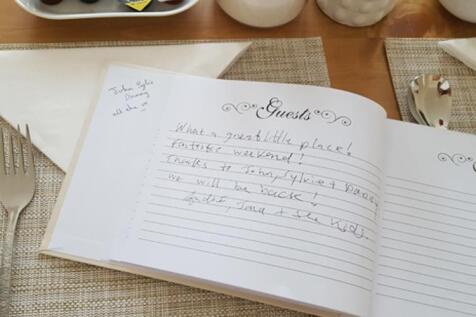 John Sylvie
Danny
all the
Guests
What a great little place!
Fantastic weekend!
Thanks to John, Sylvie + Danny
we will be back!
+ the kids.